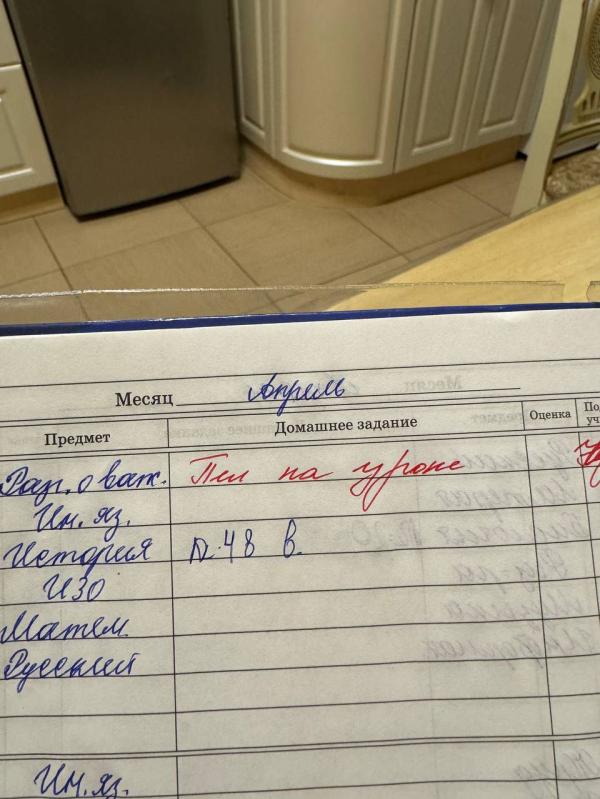 Месяц Апрель
Предмет Домашнее задание Оценка
Раз. о важ. Пел на уроке
Ин. яз.
История п. 48 в.
ИЗО
Матем.
Русский
Ин. яз.